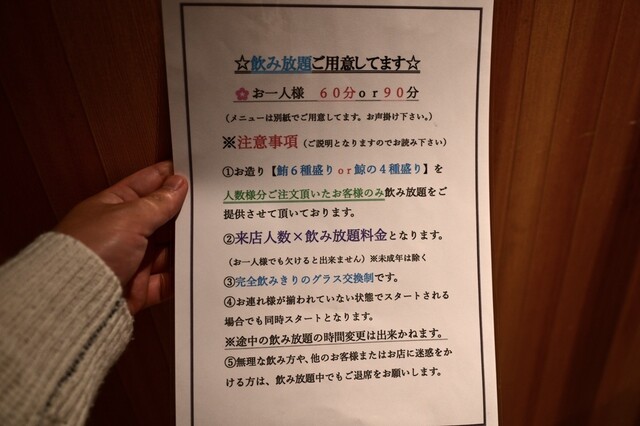 ☆飲み放題ご用意してます☆
お一人様 60分or90分
(メニューは別紙でご用意してます。お声掛け下さい。)
※注意事項(ご説明となりますのでお読み下さい)
①お造り【鮪6種盛りor鯨の4種盛り】を
人数様分ご注文頂いたお客様のみ飲み放題をご
提供させて頂いております。
②来店人数×飲み放題料金となります。
(お一人様でも欠けると出来ません)※未成年は除く
③完全飲みきりのグラス交換制です。
④お連れ様が揃われていない状態でスタートされる
場合でも同時スタートとなります。
※途中の飲み放題の時間変更は出来かねます。
⑤無理な飲み方や、他のお客様またはお店に迷惑をか
ける方は、飲み放題中でもご退席をお願いします。